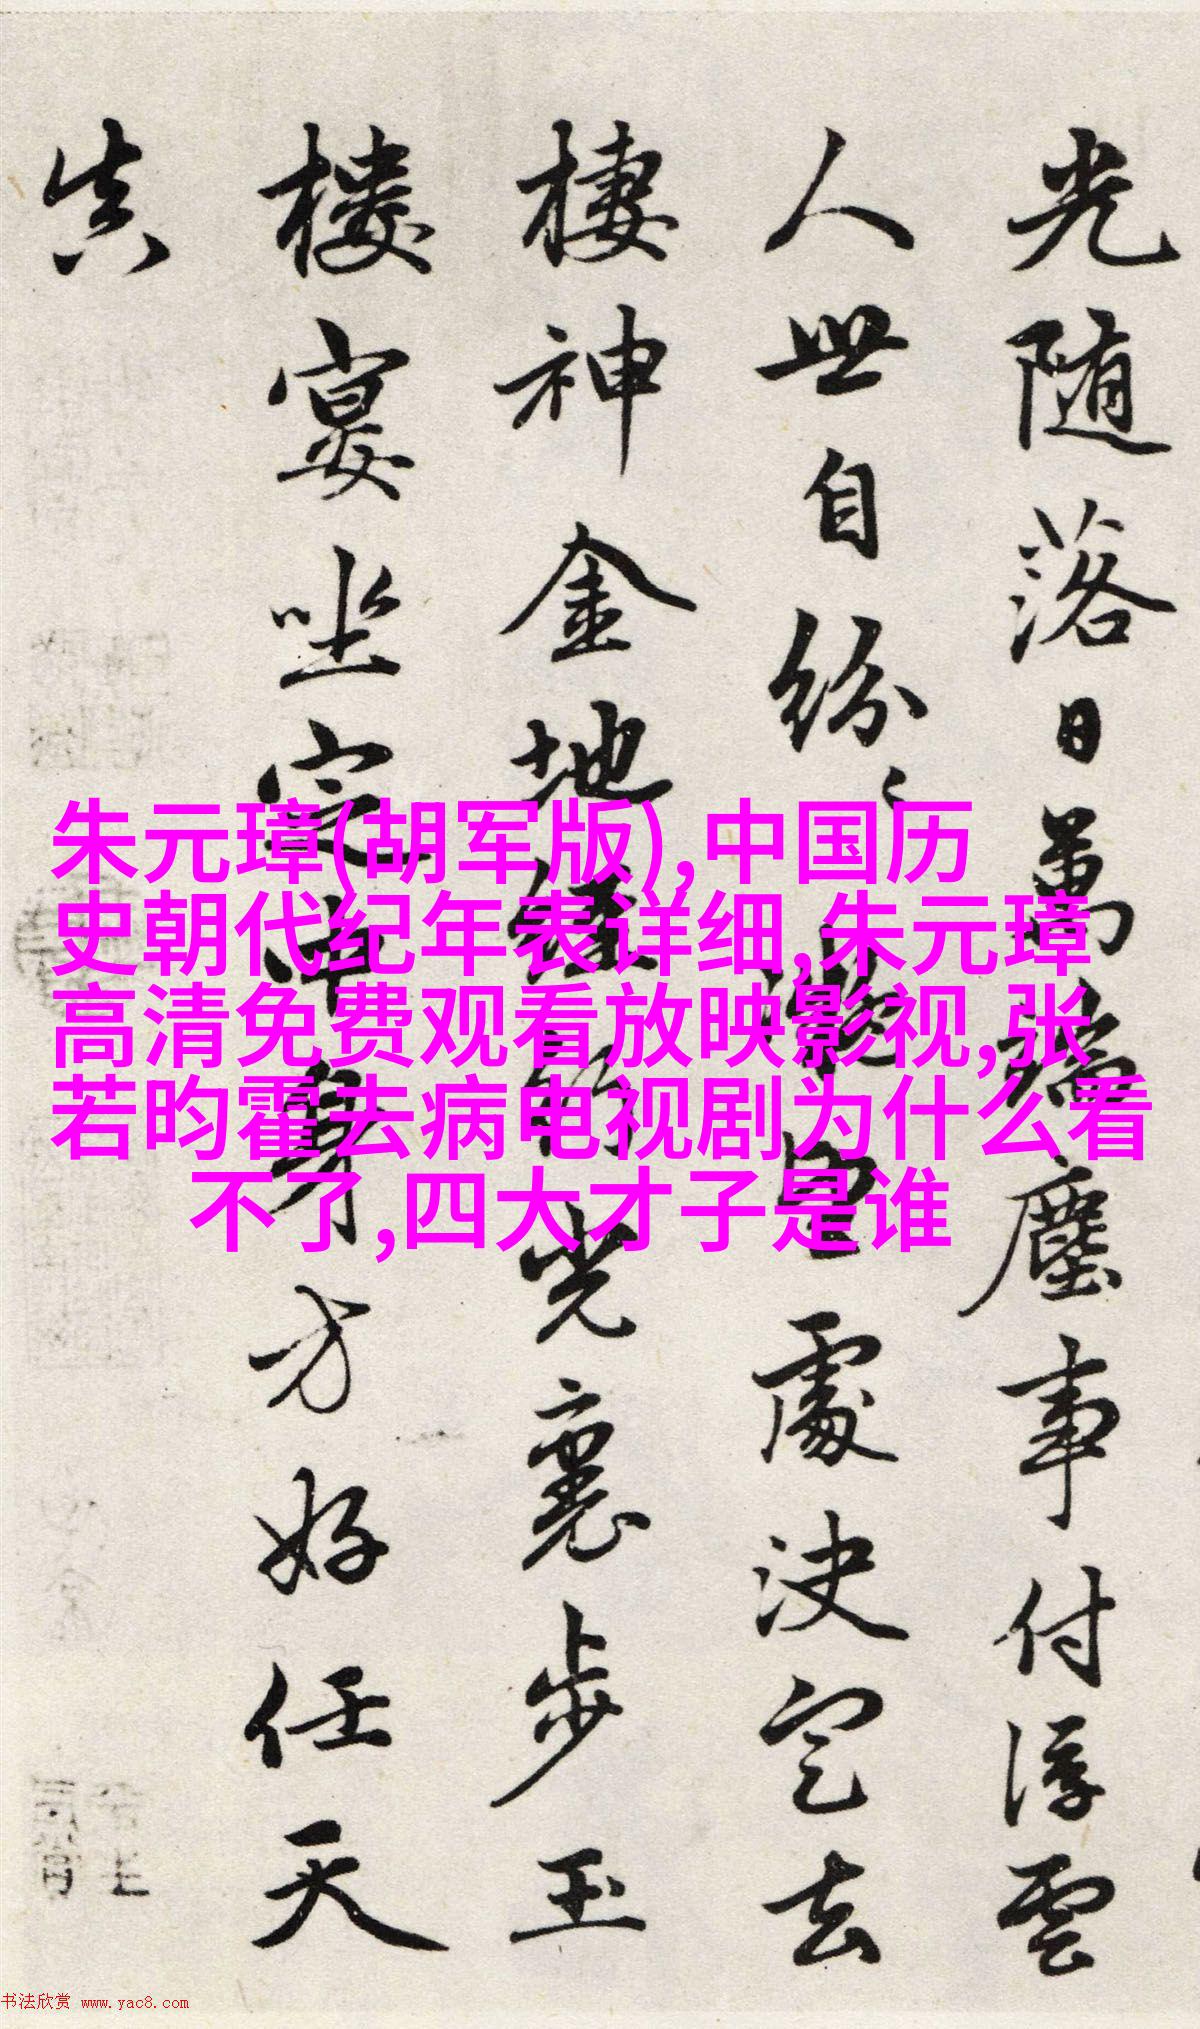 光随落日萬端塵事付浮雲
人世自紛〻皇處決定去
棲神金地經行光裏步玉
樓宴坐定中身方好任天
真
朱元璋(胡军版),中国历
史朝代纪年表详细,朱元璋
高清免费观看放映影视,张
若昀霍去病电视剧为什么看
不了,四大才子是谁
书法欣赏 www.yac8.com